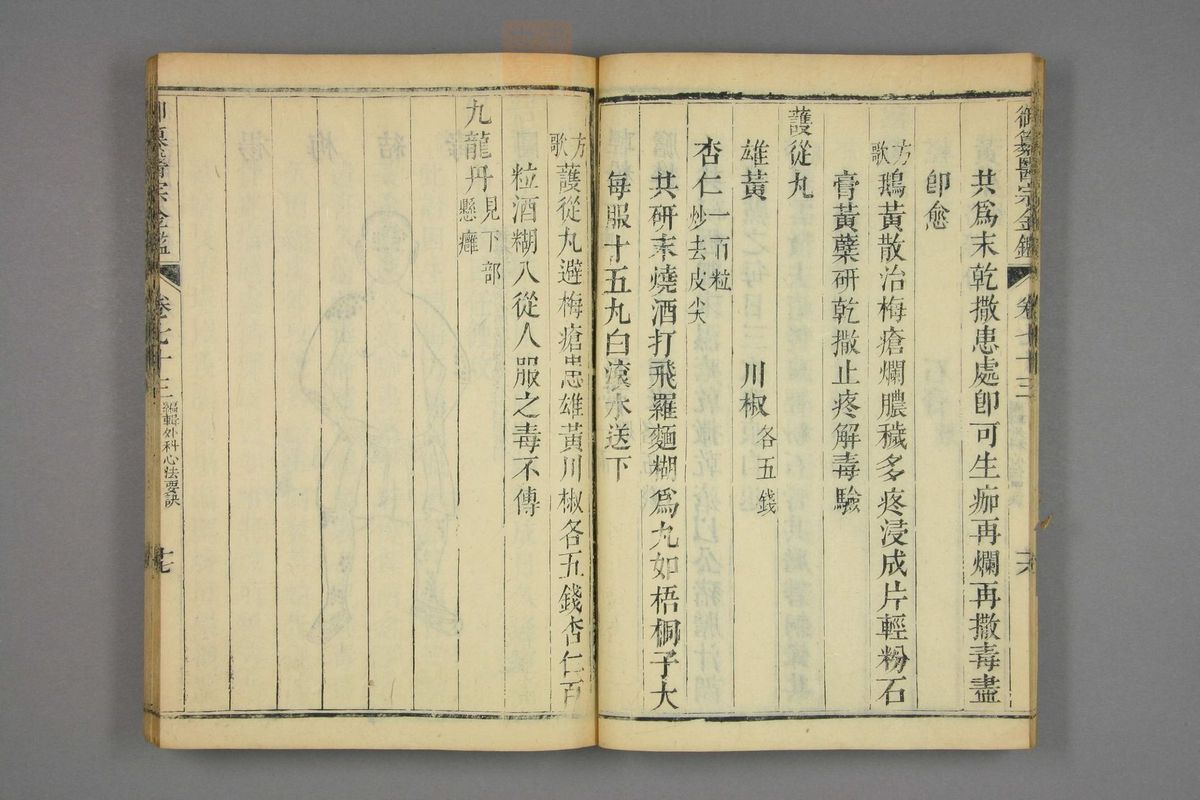 御纂醫宗金鑑 卷七十三 十六
共爲末乾撒患處卽可生痂再爛再撒毒盡
卽愈
方歌 鵝黃散治梅瘡爛膿穢多疼浸成片輕粉石
膏黃蘗研乾撒止疼解毒驗
護從丸
雄黃 川椒各五錢
杏仁一百粒炒去皮尖
共研末燒酒打飛羅麵糊爲丸如梧桐子大
每服十五丸白滾水送下
方歌 護從丸避梅瘡患雄黃川椒各五錢杏仁百
粒酒糊入從人服之毒不傳
九龍丹見下部懸癰
御纂醫宗金鑑 卷七十三 編輯外科心法要訣 十七